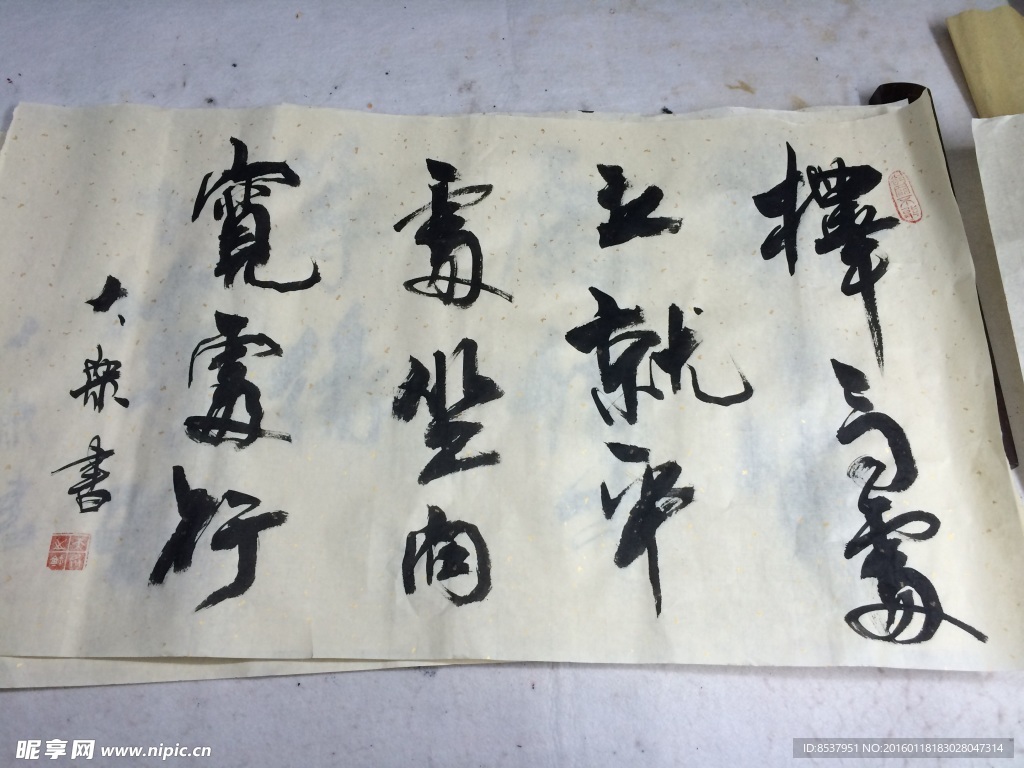 擇高處
立就平
處坐向
寬處行
大樂書
昵享网 www.nipic.cn
ID:8537951 NO:20160118183028047314